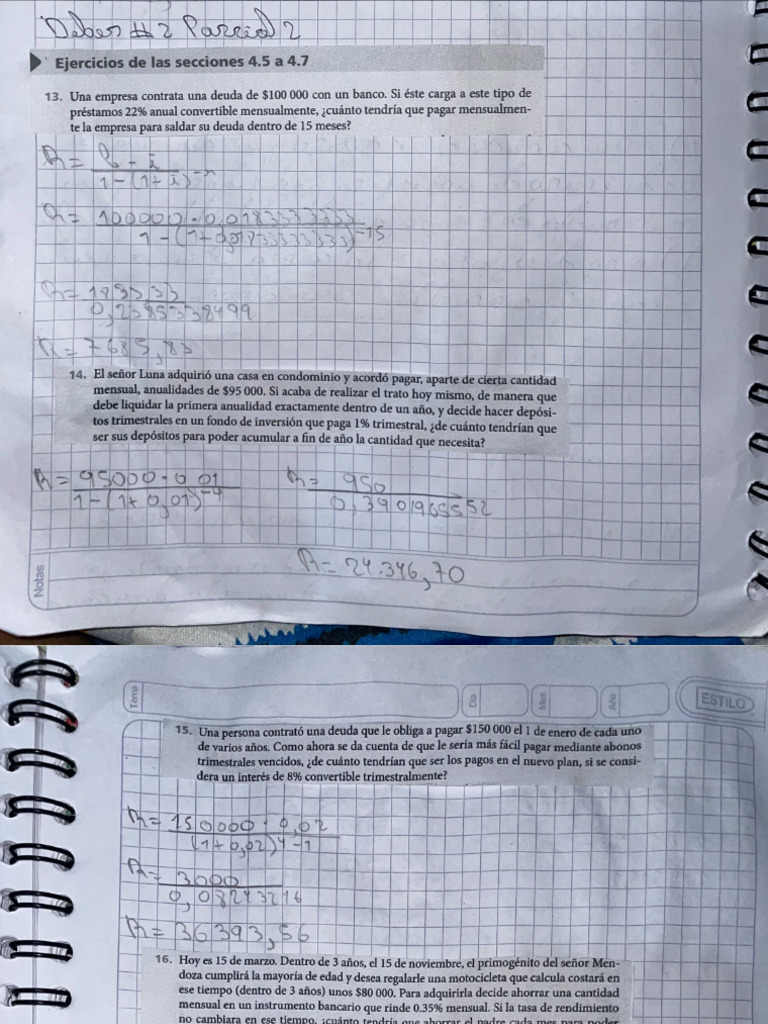 Deber #2 Parcial 2
Ejercicios de las secciones 4.5 a 4.7
13. Una empresa contrata una deuda de $100 000 con un banco. Si éste carga a este tipo de
préstamos 22% anual convertible mensualmente, ¿cuánto tendría que pagar mensualmen-
te la empresa para saldar su deuda dentro de 15 meses?
R =
1-(1+i)^-n
R = 100000·0,01833333333
1-(1+0,01833333333)^-15
R = 1833,33
0,2385338499
R = 7685,83
14. El señor Luna adquirió una casa en condominio y acordó pagar, aparte de cierta cantidad
mensual, anualidades de $95 000. Si acaba de realizar el trato hoy mismo, de manera que
debe liquidar la primera anualidad exactamente dentro de un año, y decide hacer depósi-
tos trimestrales en un fondo de inversión que paga 1% trimestral, ¿de cuánto tendrían que
ser sus depósitos para poder acumular a fin de año la cantidad que necesita?
R = 95000·0,01
1-(1+0,01)^-4
R = 950
0,3901965552
R = 24.346,70
Notas
Tema
Día
Mes
Año
ESTILO
15. Una persona contrató una deuda que le obliga a pagar $150 000 el 1 de enero de cada uno
de varios años. Como ahora se da cuenta de que le sería más fácil pagar mediante abonos
trimestrales vencidos, ¿de cuánto tendrían que ser los pagos en el nuevo plan, si se consi-
dera un interés de 8% convertible trimestralmente?
R = 150000·0,02
(1+0,02)^4-1
R = 3000
0,08243216
R = 36393,56
16. Hoy es 15 de marzo. Dentro de 3 años, el 15 de noviembre, el primogénito del señor Men-
doza cumplirá la mayoría de edad y desea regalarle una motocicleta que calcula costará en
ese tiempo (dentro de 3 años) unos $80 000. Para adquirirla decide ahorrar una cantidad
mensual en un instrumento bancario que rinde 0.35% mensual. Si la tasa de rendimiento
no cambiara en ese tiempo, ¿cuánto tendría que ahorrar el padre cada mes para poder